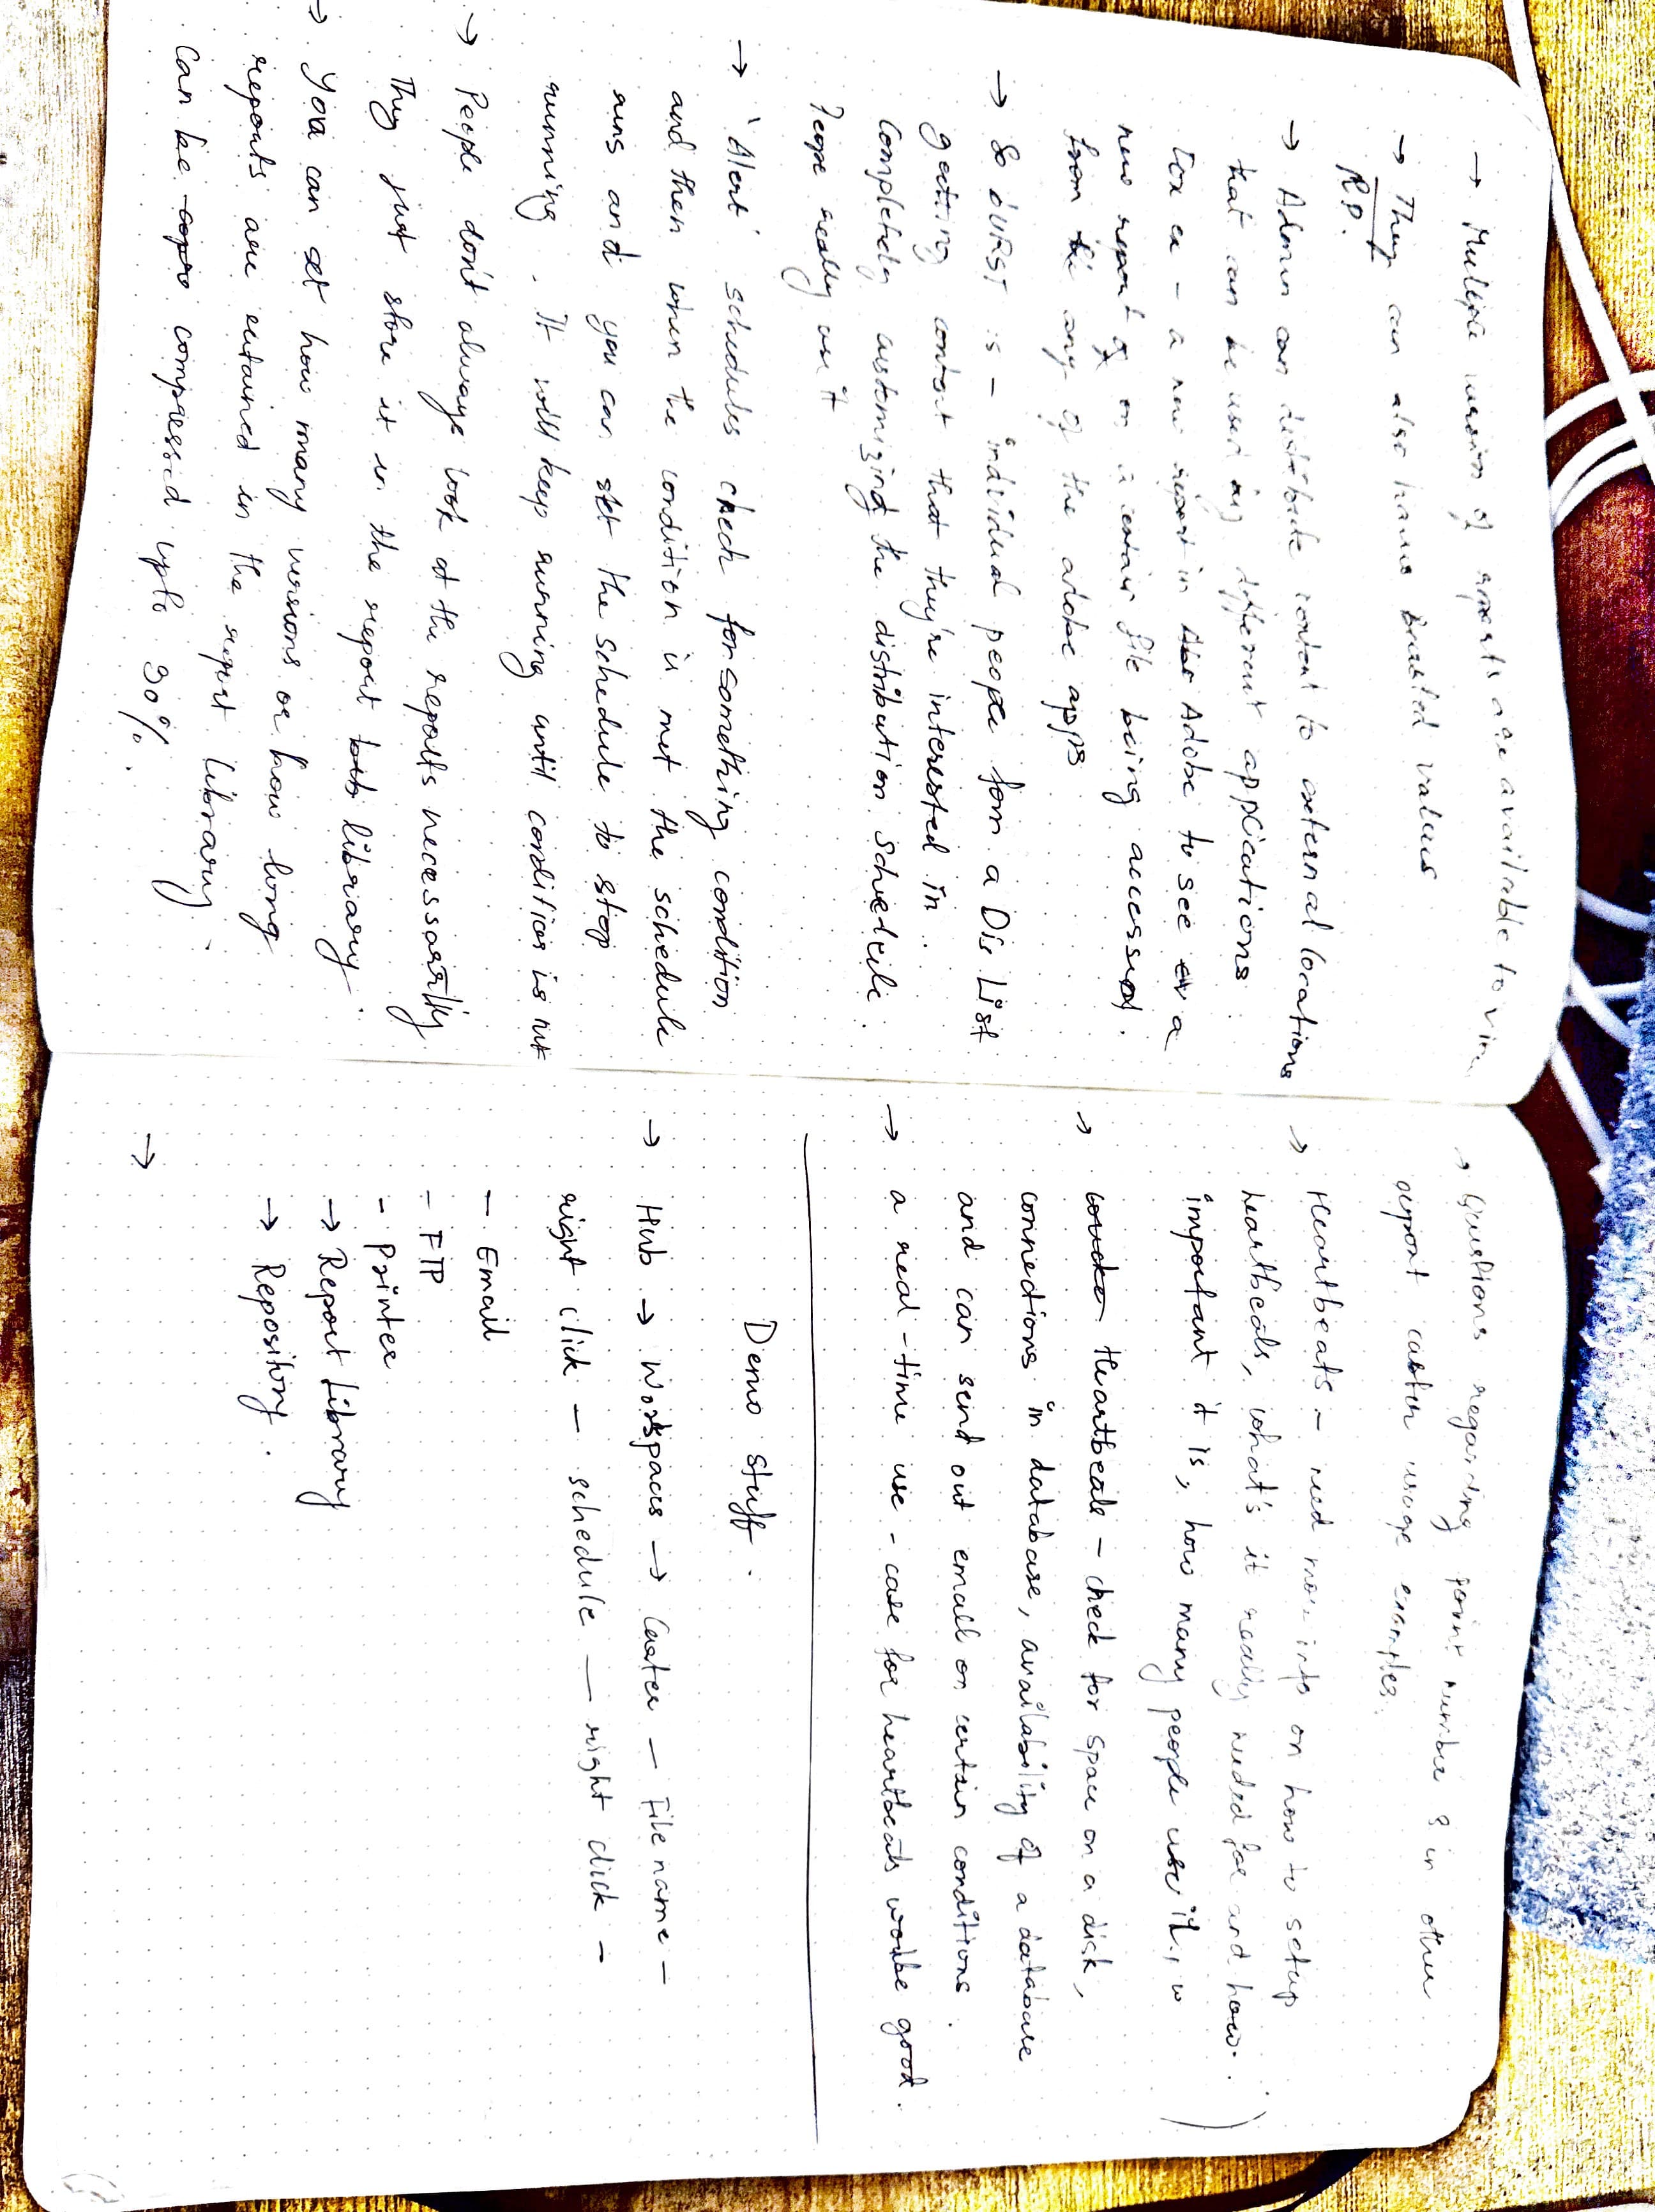 → Multiple version of reports are available to vim
→ They can also have bursted values
R.P.
→ Admin can distribute content to external locations
that can be used by different applications.
For ex - a new report in Adobe to see a
new report or a certain file being accessed.
from any of the adobe apps
→ So BURST is - individual people form a Dis List
getting content that they're interested in.
Completely customizing the distribution schedule.
People really use it
→ 'Alert' schedules check for something condition
and then when the condition is met the schedule
runs and you can set the schedule to stop
running. It will keep running until condition is nt
→ People don't always look at the reports necessarily
They just store it in the report library.
→ You can set how many versions or how long
reports are retained in the report library.
Can be compressed upto 90%.
→ Questions regarding point number 9 in other
report caster usage examples.
→ Heartbeats - need more info on how to setup
heartbeats, what's it really needed for and how.
important it is, how many people use it, w )
→ Heartbeats - check for space on a disk,
connections in database, availability of a database
and can send out email on certain conditions.
→ a real-time use-case for heartbeats would be good.
Demo stuff.
→ Hub → Workspaces → Caster - File name -
right click - schedule - right click -
- Email
- FTP
- Printer
→ Report Library
→ Repository.
→